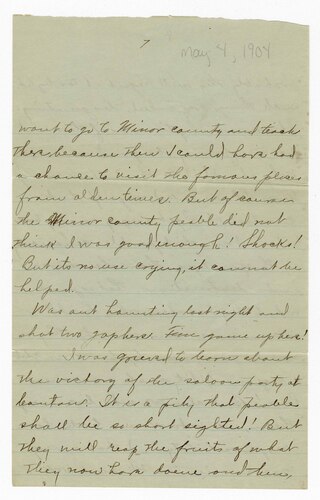 7
May 4, 1904
want to go to Minor county and teach
there, because then I could have had
a chance to visit the famous places
from olden times. But of course
the Minor county people did not
think I was good enough! Shocks!
But its no use crying, it cannot be
helped.
Was out haunting last night and
shot two gophers. Fine game up her!
I was grieved to learn about
the victory of the saloon party at
Canton. It is a pity that peoble
shall be so short sighted! But
they will reap the fruits of what
they now have doene and then,